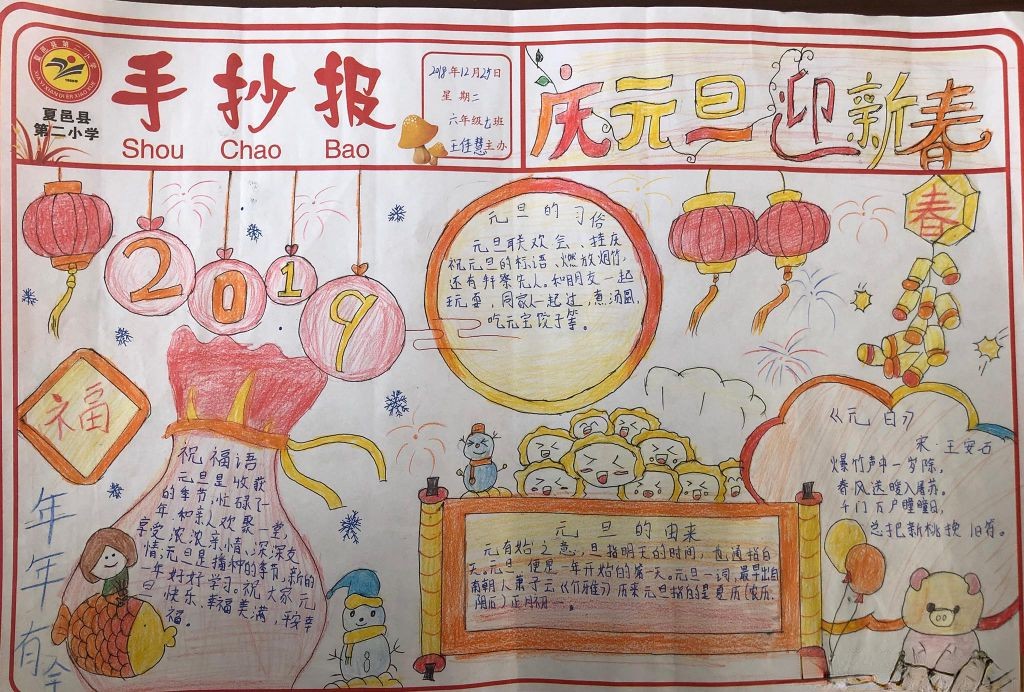 夏邑县
第二小学
手抄报
Shou Chao Bao
2018年12月25日
星期二
六年级七班
王佳慧主办
庆元旦迎新春
2019
福
祝福语
元旦是收获
的季节,忙碌了一
年,和亲人欢聚一堂,
享受浓浓亲情、深深友
情,元旦是播种的季节,新的
一年好好学习。祝大家元
旦快乐,幸福美满,平安幸
福。
年年有余
元旦的习俗
元旦联欢会、挂庆
祝元旦的标语、燃放烟竹,
还有拜祭先人。和朋友一起
玩耍,同家人一起过,煮汤圆,
吃元宝饺子等。
春
元旦的由来
元有始之意,旦指明天的时间,也通指白
天。元旦,便是一年开始的第一天。元旦一词,最早出自
南朝人萧子云《介雅》历来元旦指的是夏历(农历、
阴历)正月初一。
《元日》
宋 王安石
爆竹声中一岁除,
春风送暖入屠苏。
千门万户瞳瞳日,
总把新桃换旧符。
8